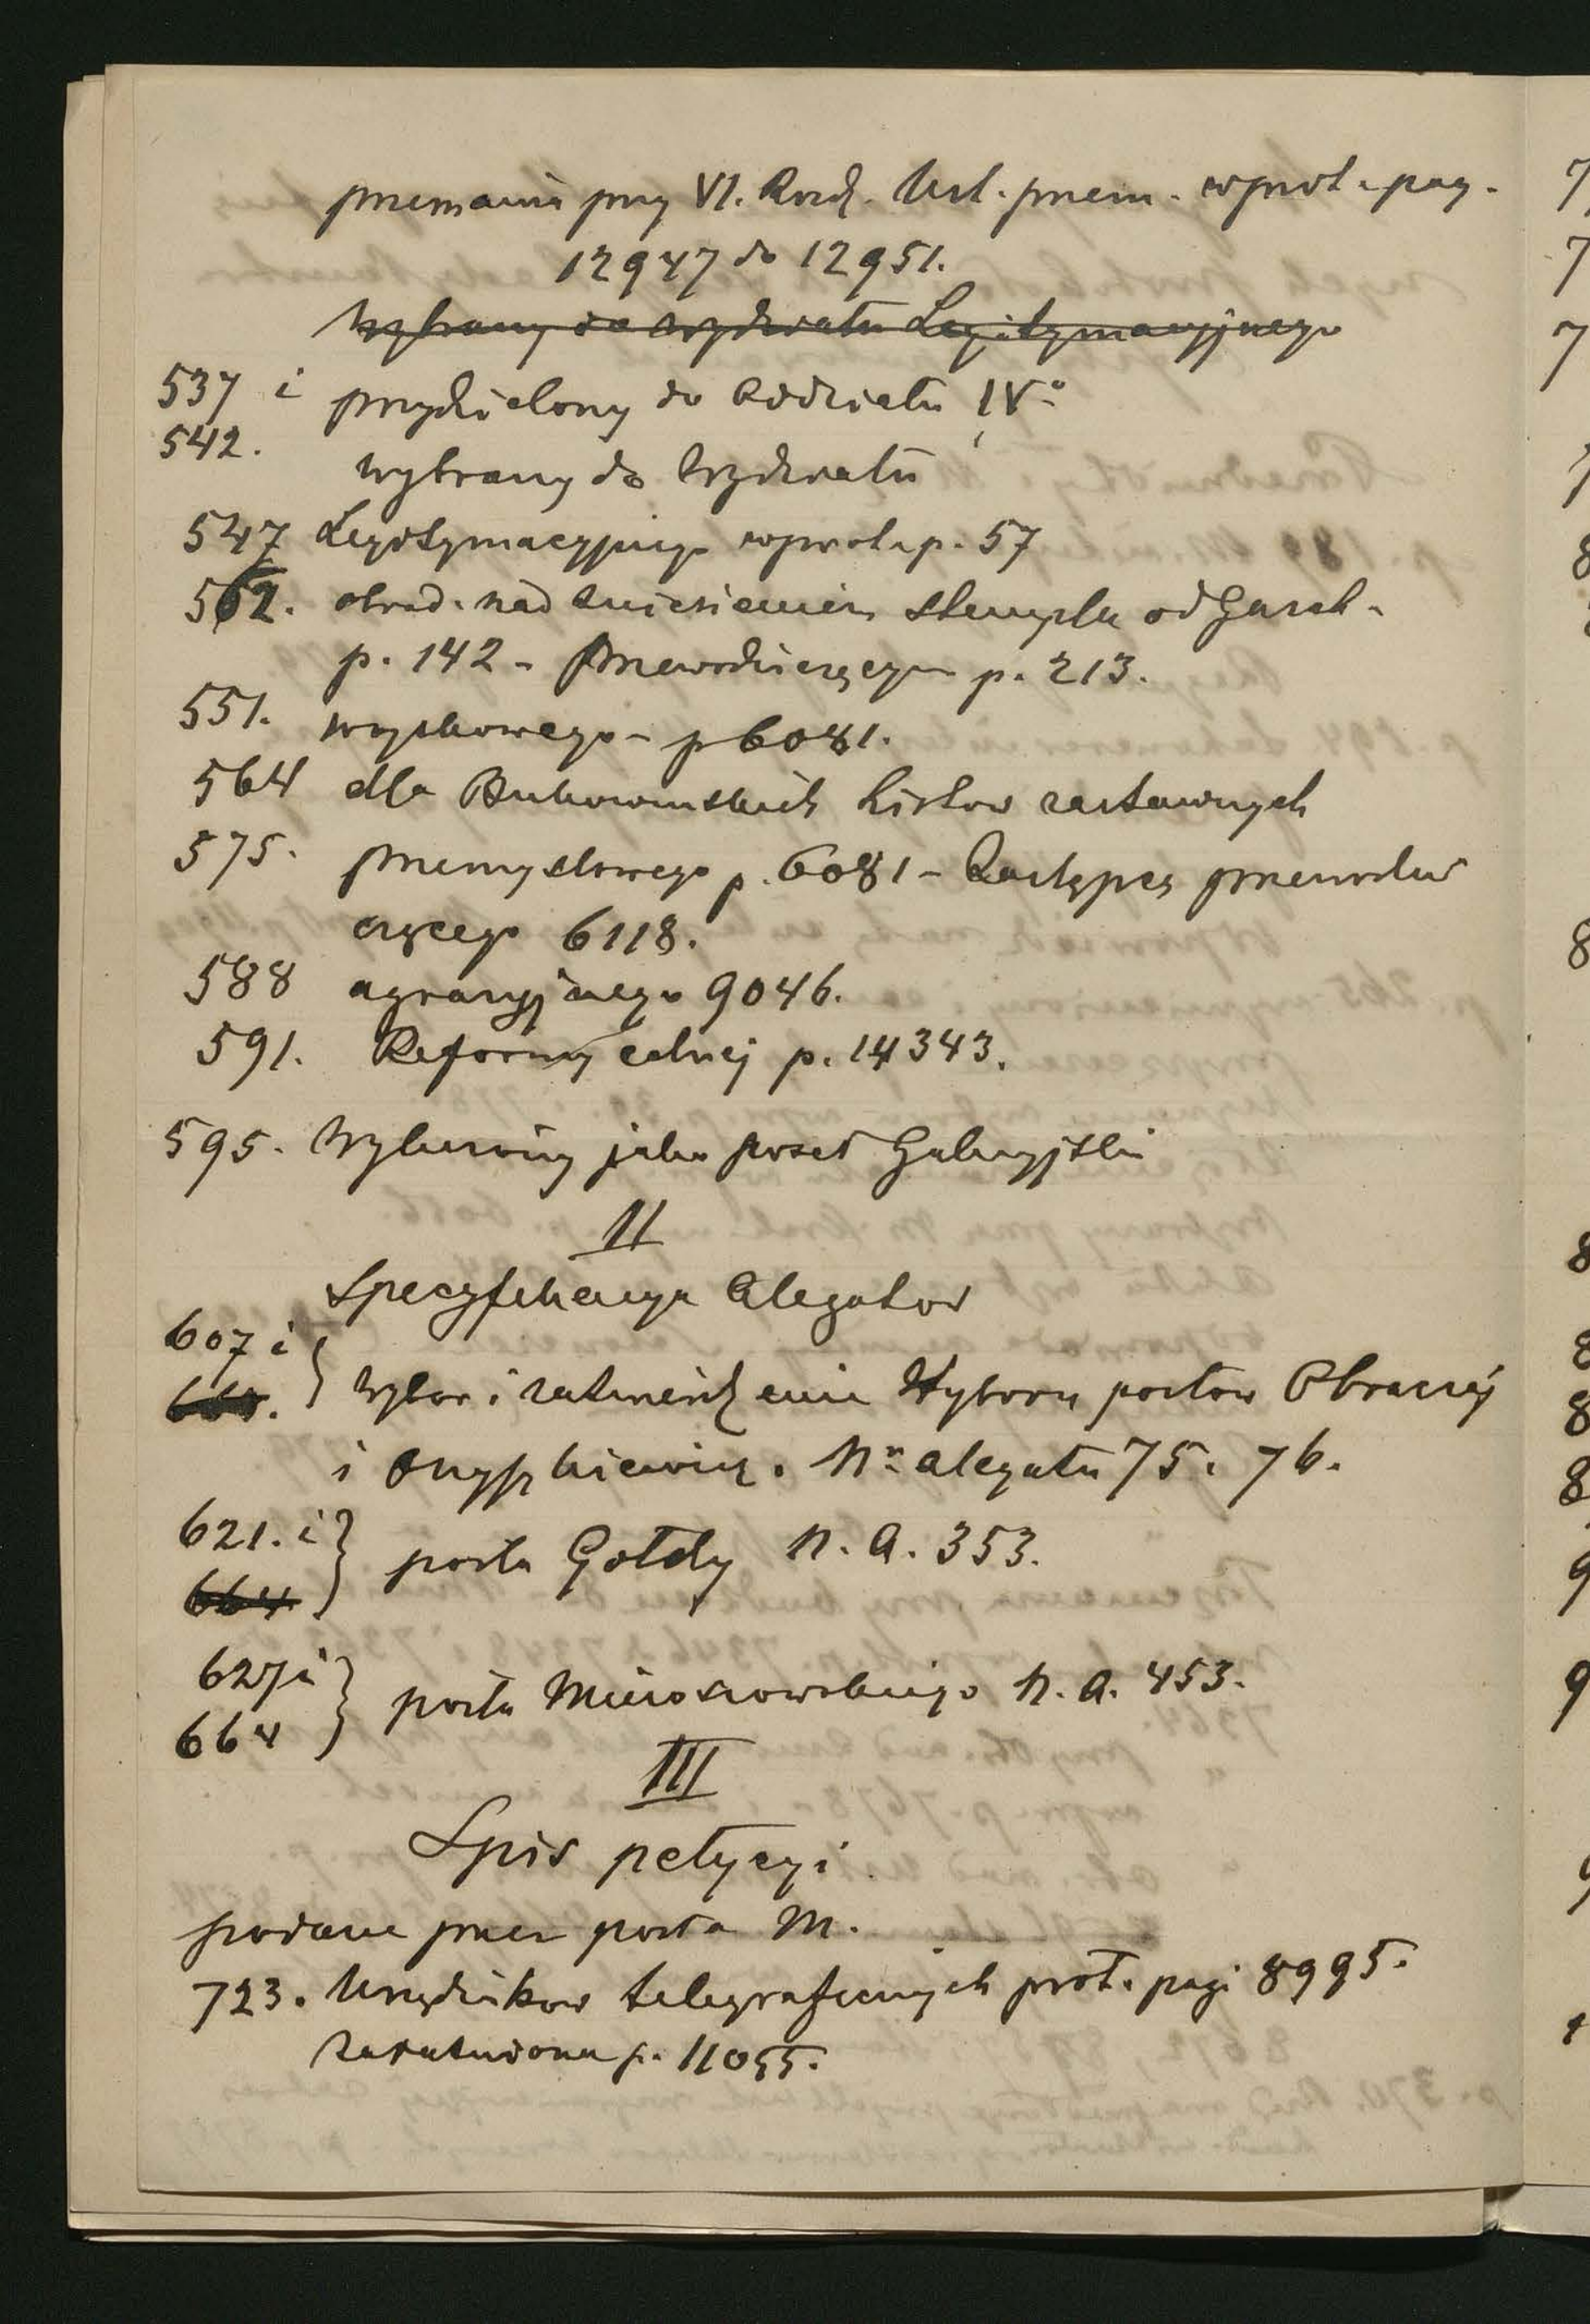 przemawia przy VI. Rozdz. Ust. przem. wprot. pag.
12947 do 12951.
Wybrany do wydziału Legitymacyjnego
537 i przydzielony do Oddziału IVo
542.
wybrany do Wydziału
547 Legitymacyjnego wprot. p. 57
562. obrad. nad zniesieniem stempla od Gazet.
p. 142 - przewodniczącym p. 213.
551. wojskowego - p 6081.
564 dla Bukowinskich Listow zastawnych
575. przemysłowego p. 6081 - Zastępcą przewodni
czącego 6118.
588 agraryjnego 9046.
591. Reformy celnej p. 14343.
595. Wyliczony jako poseł Galicyjski
II
Specyfikacya Alegatow
607 i
wybor i zatwierdzenie Wyboru posłow Obraczaj
i Onyszkiewicz. Nr alegatu 75. 76.
621. i posła Gołdy N. A. 353.
664
627 i posła Mieroszowskiego N. A. 453.
664
III
Spis petycyi
podane przez posła M.
723. Urzędnikow telegraficznych prot. pagi 8995.
załatwiona p. 11055.